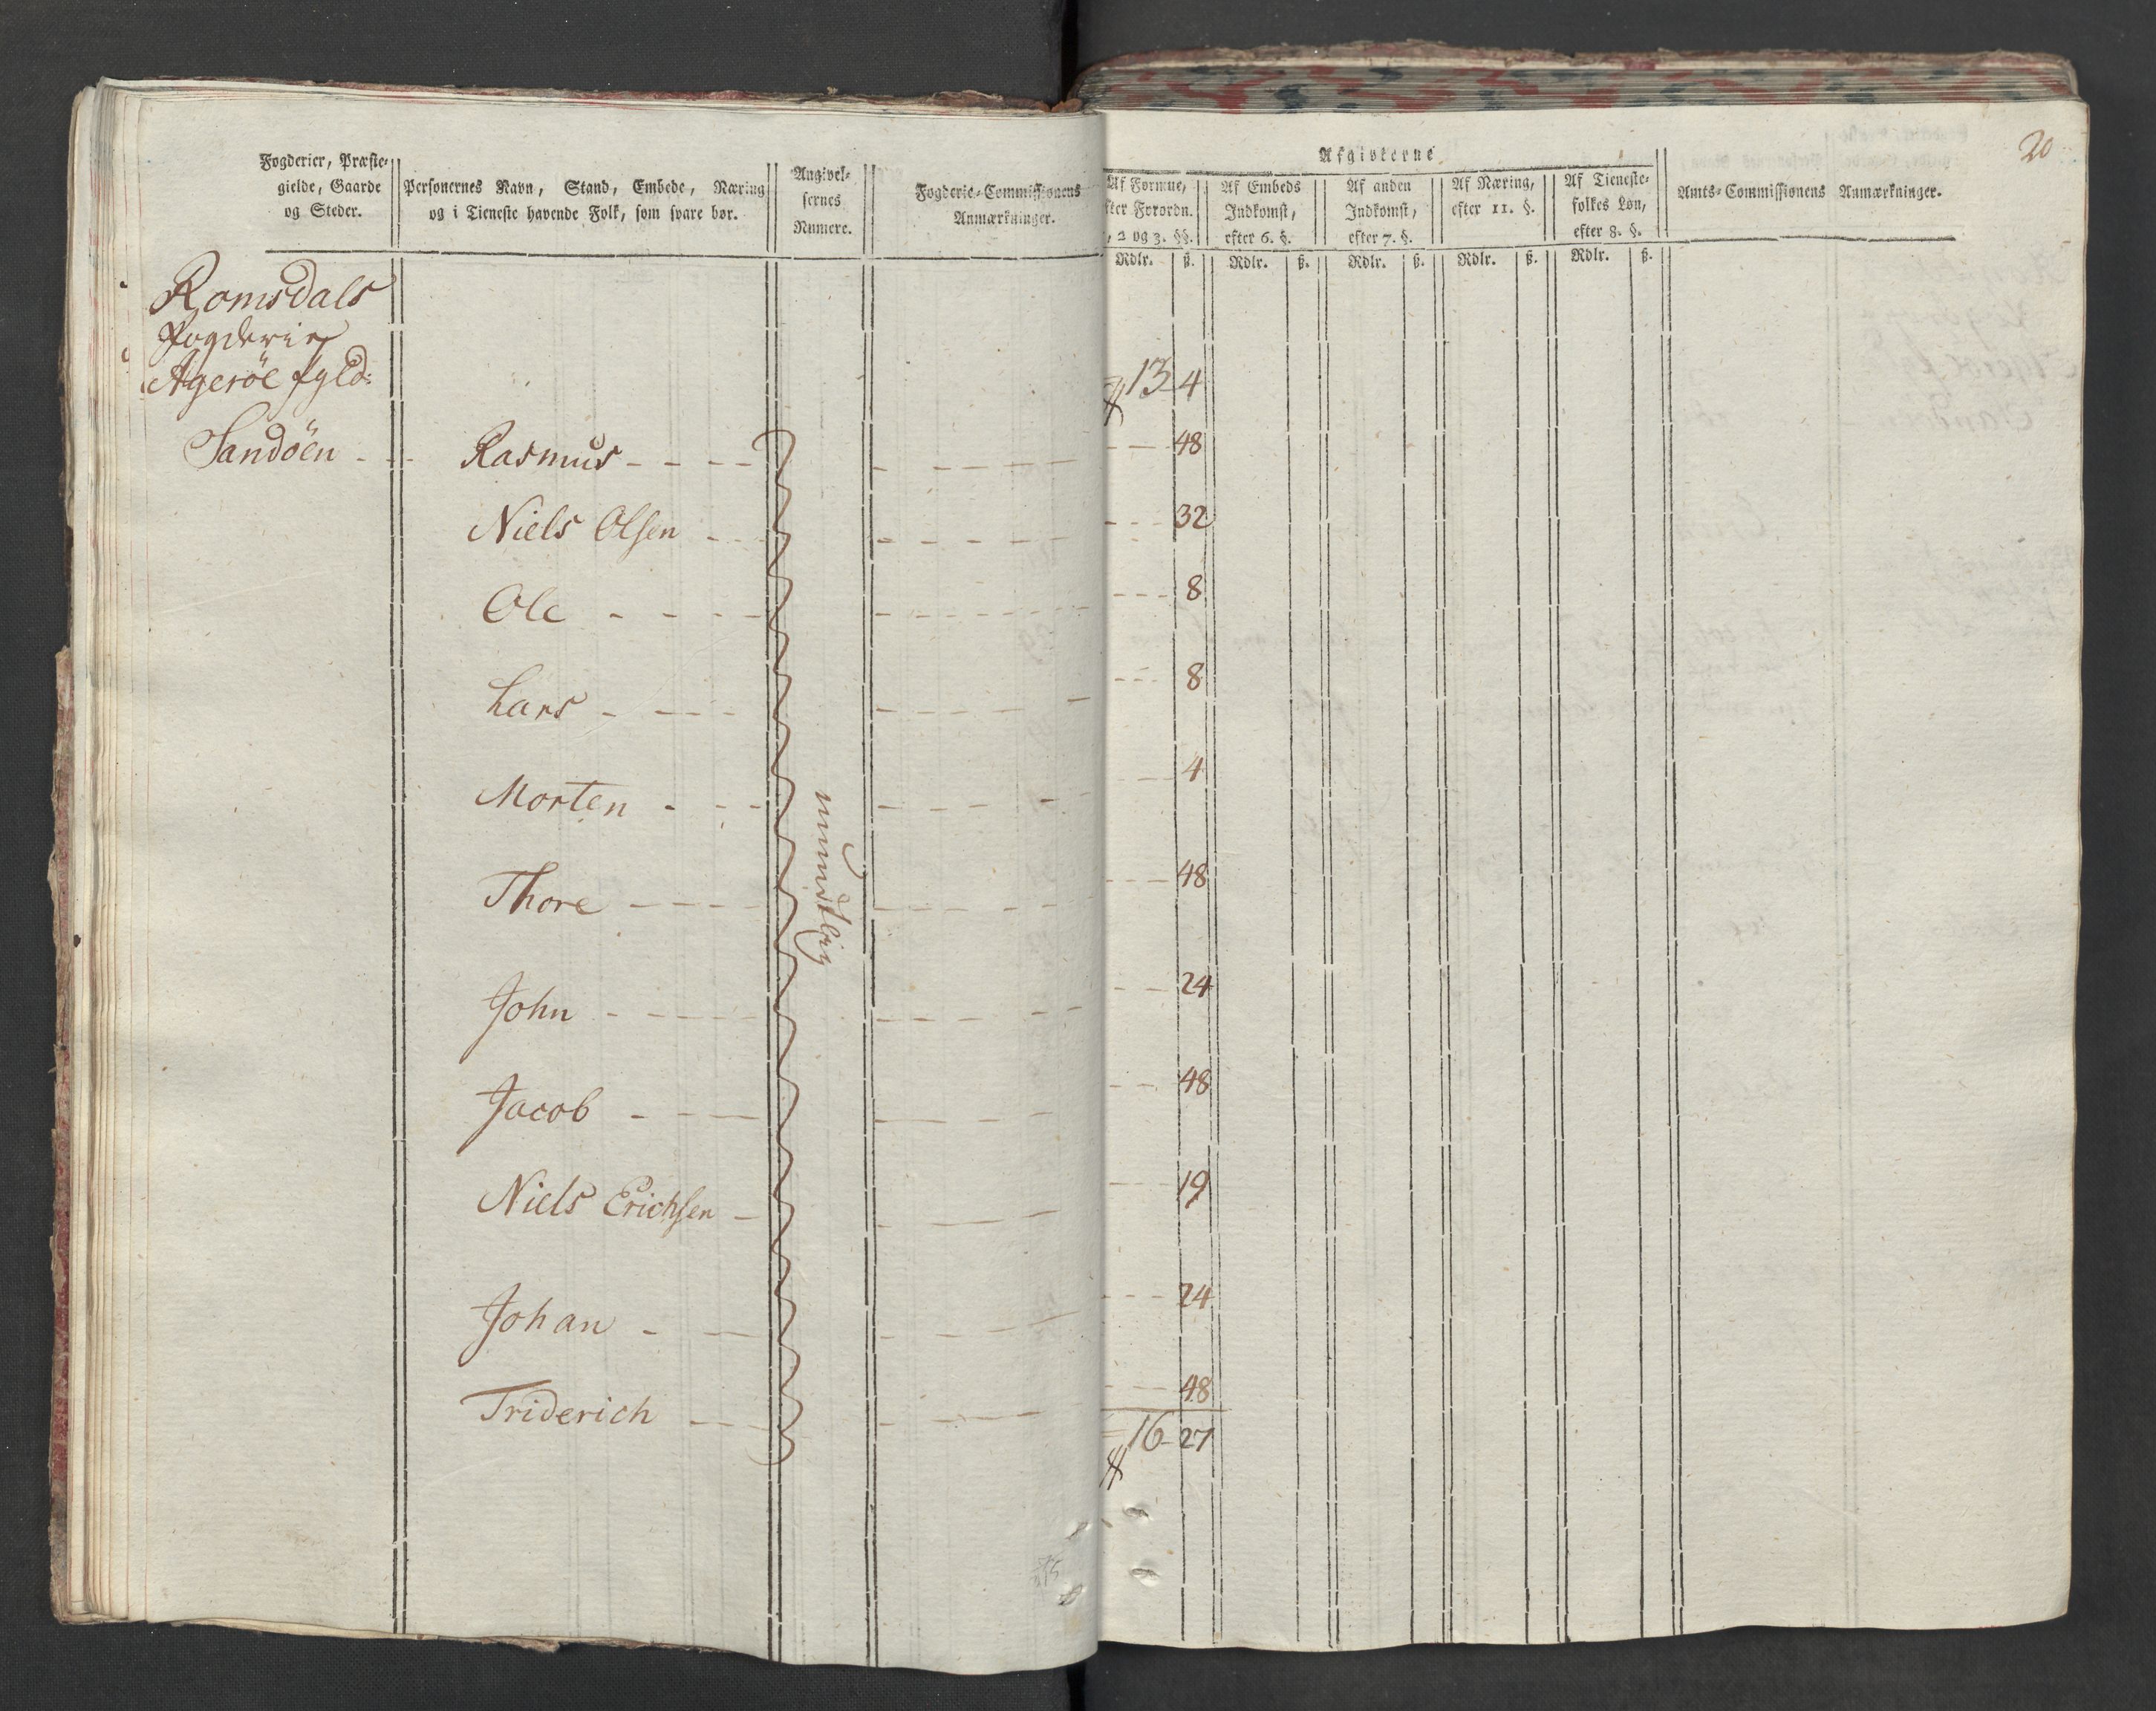 Fogderier, Præste-
gielde, Gaarde
og Steder.
Personernes Navn, Stand, Embede, Næring
og i Tieneste havende Folk, som svare bør.
Angivel-
sernes
Numere.
Fogderie-Commissionens
Anmærkninger.
20
Afgivterne
Af Formue,
fter Forordn.
, 2 og 3. §§.
Af Embeds
Indkomst,
efter 6. §.
Af anden
Indkomst,
efter 7. §.
Af Næring,
efter 11. §.
Af Tieneste-
folkes Løn,
efter 8. §.
Amts-Commissionens Anmærkninger.
Rdlr. ß. Rdlr. ß. Rdlr. ß. Rdlr. ß. Rdlr. ß.
Romsdals
Fogderie
Agerøe
13 - 4
Sandöen - - Rasmus - - - - 48
Niels Olsen - - - 32
Ole - - - - 8
Lars - - - - 8
Morten - - - 4
Thore - - - - 48
mundtlig
John - - - - 24
Jacob - - - 48
Niels Erichsen - 19
Johan - - 24
Friderich - - 48
16 - 27